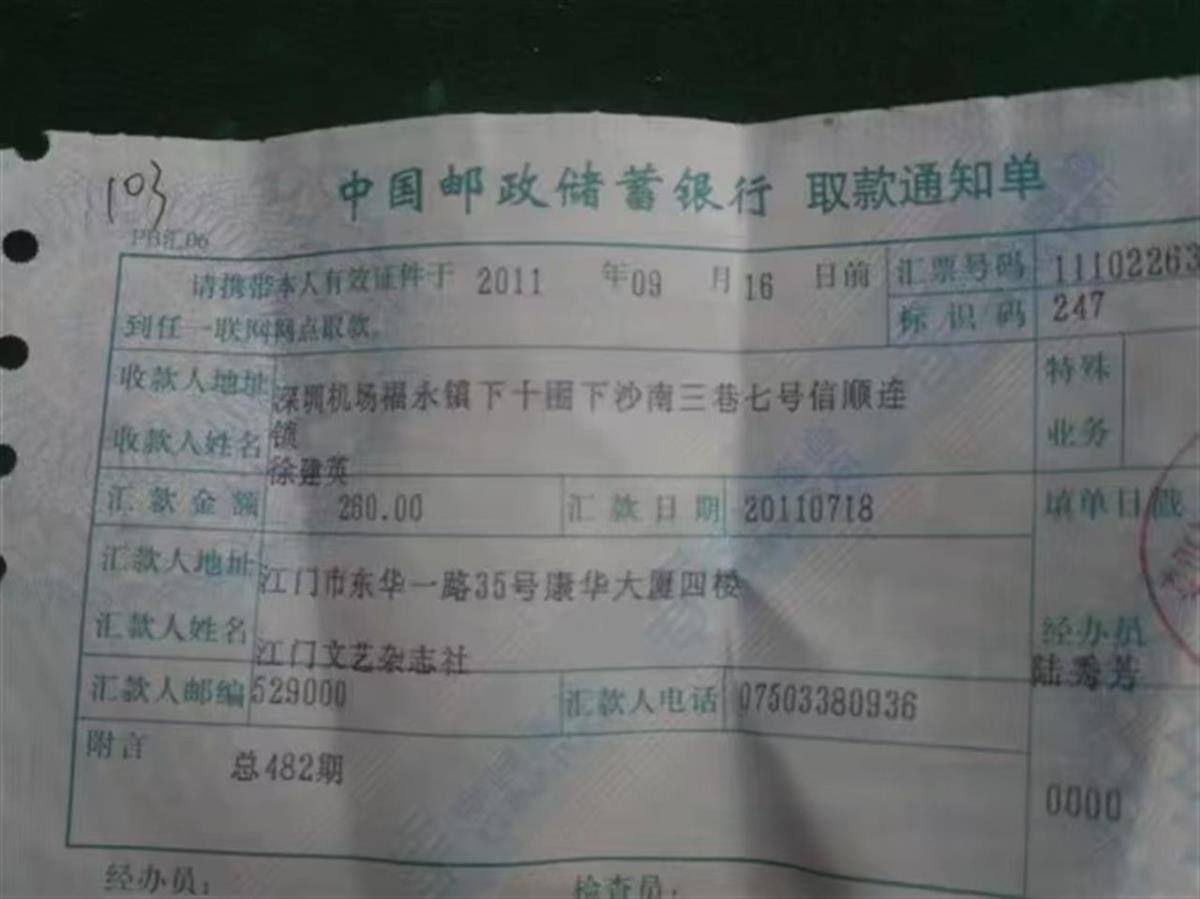 103
中国邮政储蓄银行 取款通知单
PB汇06
请携带本人有效证件于 2011 年09 月16 日前
到任一联网网点取款。
汇票号码 11102263
标识码 247
收款人地址 深圳机场福永镇下十围下沙南三巷七号信顺连
锁
收款人姓名 徐建英
特殊
业务
汇款金额 260.00 汇款日期 20110718
填单日戳
汇款人地址 江门市东华一路35号康华大厦四楼
汇款人姓名 江门文艺杂志社
经办员
陆秀芳
汇款人邮编 529000 汇款人电话 07503380936
附言 总482期
0000
经办员: 检查员: